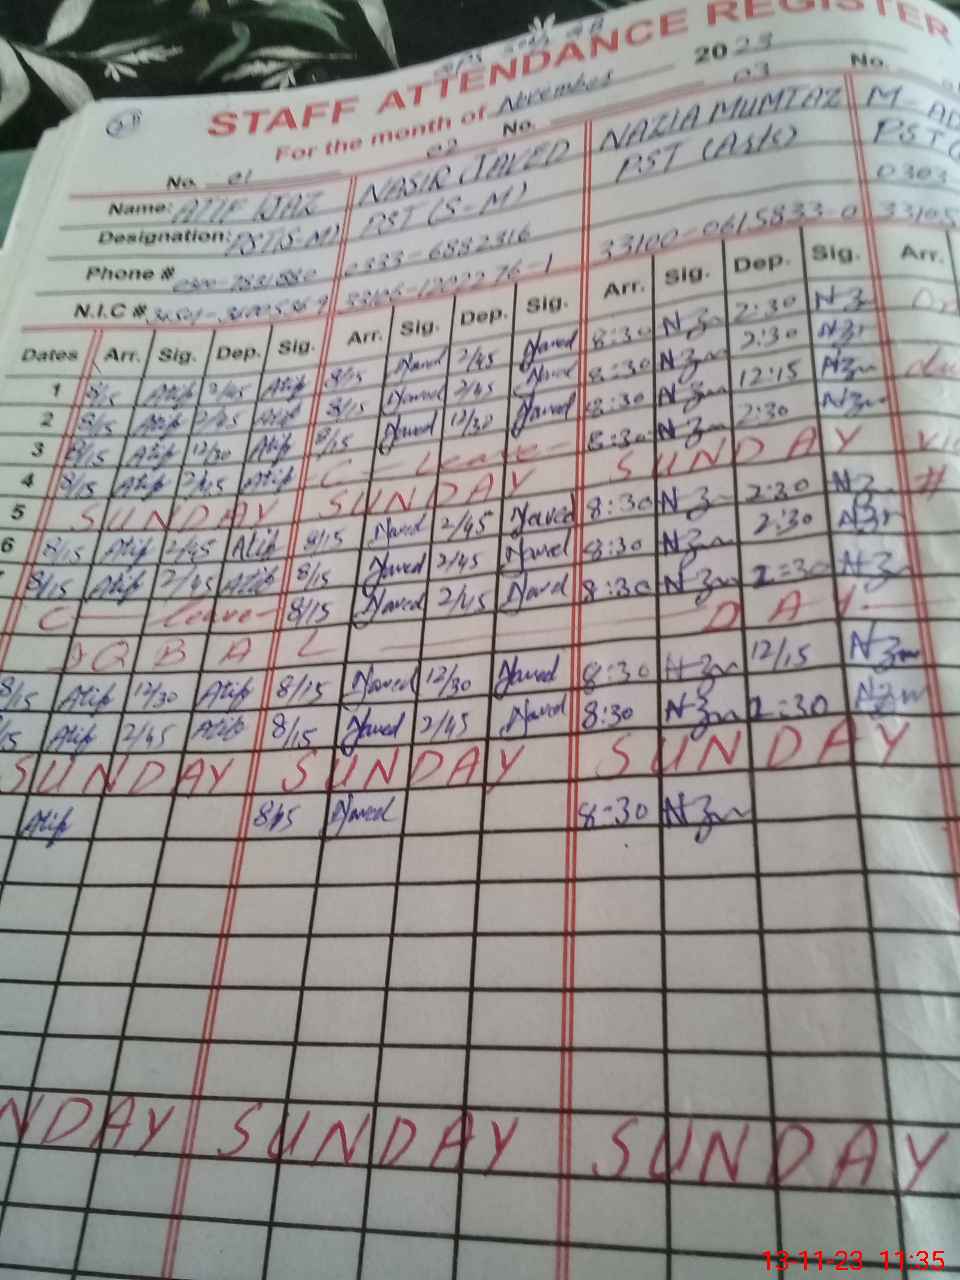 STAFF ATTENDANCE REGISTER
For the month of November 2023
No. 01 02 No. 03 No.
Name: ATIF IJAZ NASIR JAVED NAZIA MUMTAZ M-
Designation: PST(S-M) PST(S-M) PST (Ask) PST(
Phone # 0333-6882316 0303
N.I.C # 33100-0615833-0 33105
Dates Arr. Sig. Dep. Sig. Arr. Sig. Dep. Sig. Arr. Sig. Dep. Sig. Arr.
1 8/15 Atif 2/45 Atif 8/15 Javed 2/45 Javed 8:30 Nzm 2:30 Nzm
2 8/15 Atif 2/45 Atif 8/15 Javed 2/45 Javed 8:30 Nzm 2:30 Nzm
3 8/15 Atif 12/30 Atif 8/15 Javed 12/30 Javed 8:30 Nzm 12:15 Nzm
4 8/15 Atif 2/45 Atif C-Leave- 8:30 Nzm 2:30 Nzm
5 SUNDAY SUNDAY SUNDAY
6 8/15 Atif 2/45 Atif 8/15 Javed 2/45 Javed 8:30 Nzm 2:30 Nzm
8/15 Atif 2/45 Atif 8/15 Javed 2/45 Javed 8:30 Nzm 2:30 Nzm
C- leave- 8/15 Javed 2/45 Javed 8:30 Nzm 2:30 Nzm
IQBAL DAY
8/15 Atif 12/30 Atif 8/15 Javed 12/30 Javed 8:30 Nzm 12/15 Nzm
15 Atif 2/45 Atif 8/15 Javed 2/45 Javed 8:30 Nzm 2:30 Nzm
SUNDAY SUNDAY SUNDAY
Atif 8/15 Javed 8:30 Nzm
NDAY SUNDAY SUNDAY
13-11-23 11:35